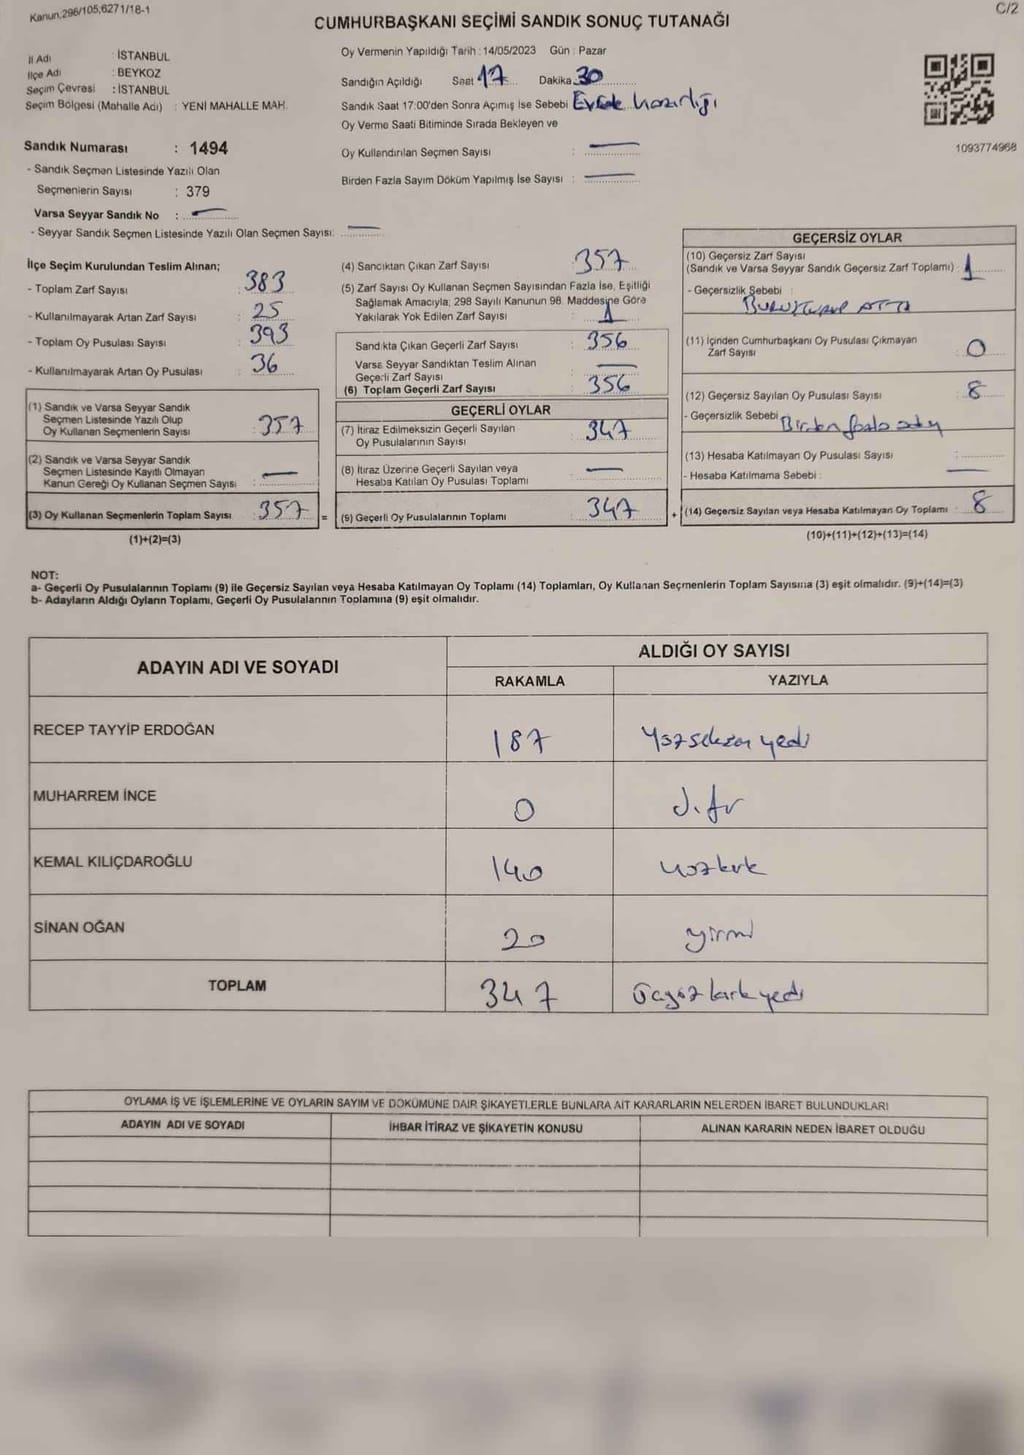 Kanun.298/105;6271/18-1
C/2
CUMHURBAŞKANI SEÇİMİ SANDIK SONUÇ TUTANAĞI
İl Adı : İSTANBUL
İlçe Adı : BEYKOZ
Seçim Çevresi : İSTANBUL
Seçim Bölgesi (Mahalle Adı) : YENİ MAHALLE MAH.
Oy Vermenin Yapıldığı Tarih : 14/05/2023 Gün : Pazar
Sandığın Açıldığı Saat 17 Dakika 30
Sandık Saat 17:00'den Sonra Açımış İse Sebebi Evrak hazırlığı
Oy Verme Saati Bitiminde Sırada Bekleyen ve
Oy Kullandırılan Seçmen Sayısı : —
Birden Fazla Sayım Döküm Yapılmış İse Sayısı : —
1093774968
Sandık Numarası : 1494
- Sandık Seçmen Listesinde Yazılı Olan
Seçmenlerin Sayısı : 379
Varsa Seyyar Sandık No : —
- Seyyar Sandık Seçmen Listesinde Yazılı Olan Seçmen Sayısı: —
İlçe Seçim Kurulundan Teslim Alınan;
- Toplam Zarf Sayısı : 383
- Kullanılmayarak Artan Zarf Sayısı : 25
- Toplam Oy Pusulası Sayısı : 393
- Kullanılmayarak Artan Oy Pusulası : 36
(1) Sandık ve Varsa Seyyar Sandık
Seçmen Listesinde Yazılı Olup
Oy Kullanan Seçmenlerin Sayısı : 357
(2) Sandık ve Varsa Seyyar Sandık
Seçmen Listesinde Kayıtlı Olmayan
Kanun Gereği Oy Kullanan Seçmen Sayısı : —
(3) Oy Kullanan Seçmenlerin Toplam Sayısı : 357 =
(1)+(2)=(3)
(4) Sandıktan Çıkan Zarf Sayısı : 357
(5) Zarf Sayısı Oy Kullanan Seçmen Sayısından Fazla İse, Eşitliği
Sağlamak Amacıyla; 298 Sayılı Kanunun 98. Maddesine Göre
Yakılarak Yok Edilen Zarf Sayısı : 1
Sandıkta Çıkan Geçerli Zarf Sayısı : 356
Varsa Seyyar Sandıktan Teslim Alınan
Geçerli Zarf Sayısı : —
(6) Toplam Geçerli Zarf Sayısı : 356
GEÇERLİ OYLAR
(7) İtiraz Edilmeksizin Geçerli Sayılan
Oy Pusulalarının Sayısı : 347
(8) İtiraz Üzerine Geçerli Sayılan veya
Hesaba Katılan Oy Pusulası Toplamı : —
(9) Geçerli Oy Pusulalarının Toplamı : 347 +
GEÇERSİZ OYLAR
(10) Geçersiz Zarf Sayısı
(Sandık ve Varsa Seyyar Sandık Geçersiz Zarf Toplamı) : 1
- Geçersizlik Sebebi :
BURUŞTURUP ATTI
(11) İçinden Cumhurbaşkanı Oy Pusulası Çıkmayan
Zarf Sayısı : 0
(12) Geçersiz Sayılan Oy Pusulası Sayısı : 8
- Geçersizlik Sebebi : Birden fazla aday
(13) Hesaba Katılmayan Oy Pusulası Sayısı :
- Hesaba Katılmama Sebebi : —
(14) Geçersiz Sayılan veya Hesaba Katılmayan Oy Toplamı : 8
(10)+(11)+(12)+(13)=(14)
NOT:
a- Geçerli Oy Pusulalarının Toplamı (9) ile Geçersiz Sayılan veya Hesaba Katılmayan Oy Toplamı (14) Toplamları, Oy Kullanan Seçmenlerin Toplam Sayısına (3) eşit olmalıdır. (9)+(14)=(3)
b- Adayların Aldığı Oyların Toplamı, Geçerli Oy Pusulalarının Toplamına (9) eşit olmalıdır.
ADAYIN ADI VE SOYADI ALDIĞI OY SAYISI
RAKAMLA YAZIYLA
RECEP TAYYİP ERDOĞAN 187 Yüzseksen yedi
MUHARREM İNCE 0 sıfır
KEMAL KILIÇDAROĞLU 140 yüzkırk
SİNAN OĞAN 20 yirmi
TOPLAM 347 Üçyüz kırk yedi
OYLAMA İŞ VE İŞLEMLERİNE VE OYLARIN SAYIM VE DÖKÜMÜNE DAİR ŞİKAYETLERLE BUNLARA AİT KARARLARIN NELERDEN İBARET BULUNDUKLARI
ADAYIN ADI VE SOYADI İHBAR İTİRAZ VE ŞİKAYETİN KONUSU ALINAN KARARIN NEDEN İBARET OLDUĞU